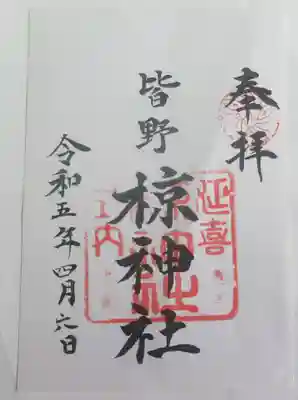 奉拝
皆野
椋神社
令和五年四月六日
延喜
式内